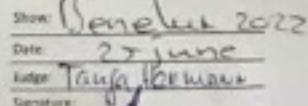 Show: Benelux 2022
Date: 25 june
Judge: Tanja
Signature: